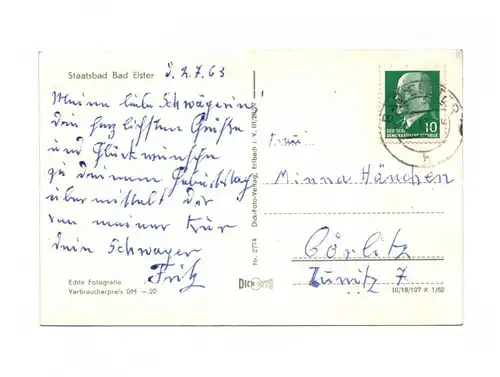 Staatsbad Bad Elster
d. 2.7.63
Meine liebe Schwägerin!
die herzlichsten Grüße
und Glückwünsche
zu deinem Geburtstag
übermittelt dir
von meiner Kur
dein Schwager
Fritz
Echte Fotografie
Verbraucherpreis DM —.20
Nr. 2774 Dick-Foto-Verlag, Erlbach i. V.
DICK
10
DEUTSCHE
DEMOKRATISCHE REPUBLIK
Frau
Minna Hänchen
Görlitz
7
III/18/197 K 1/62